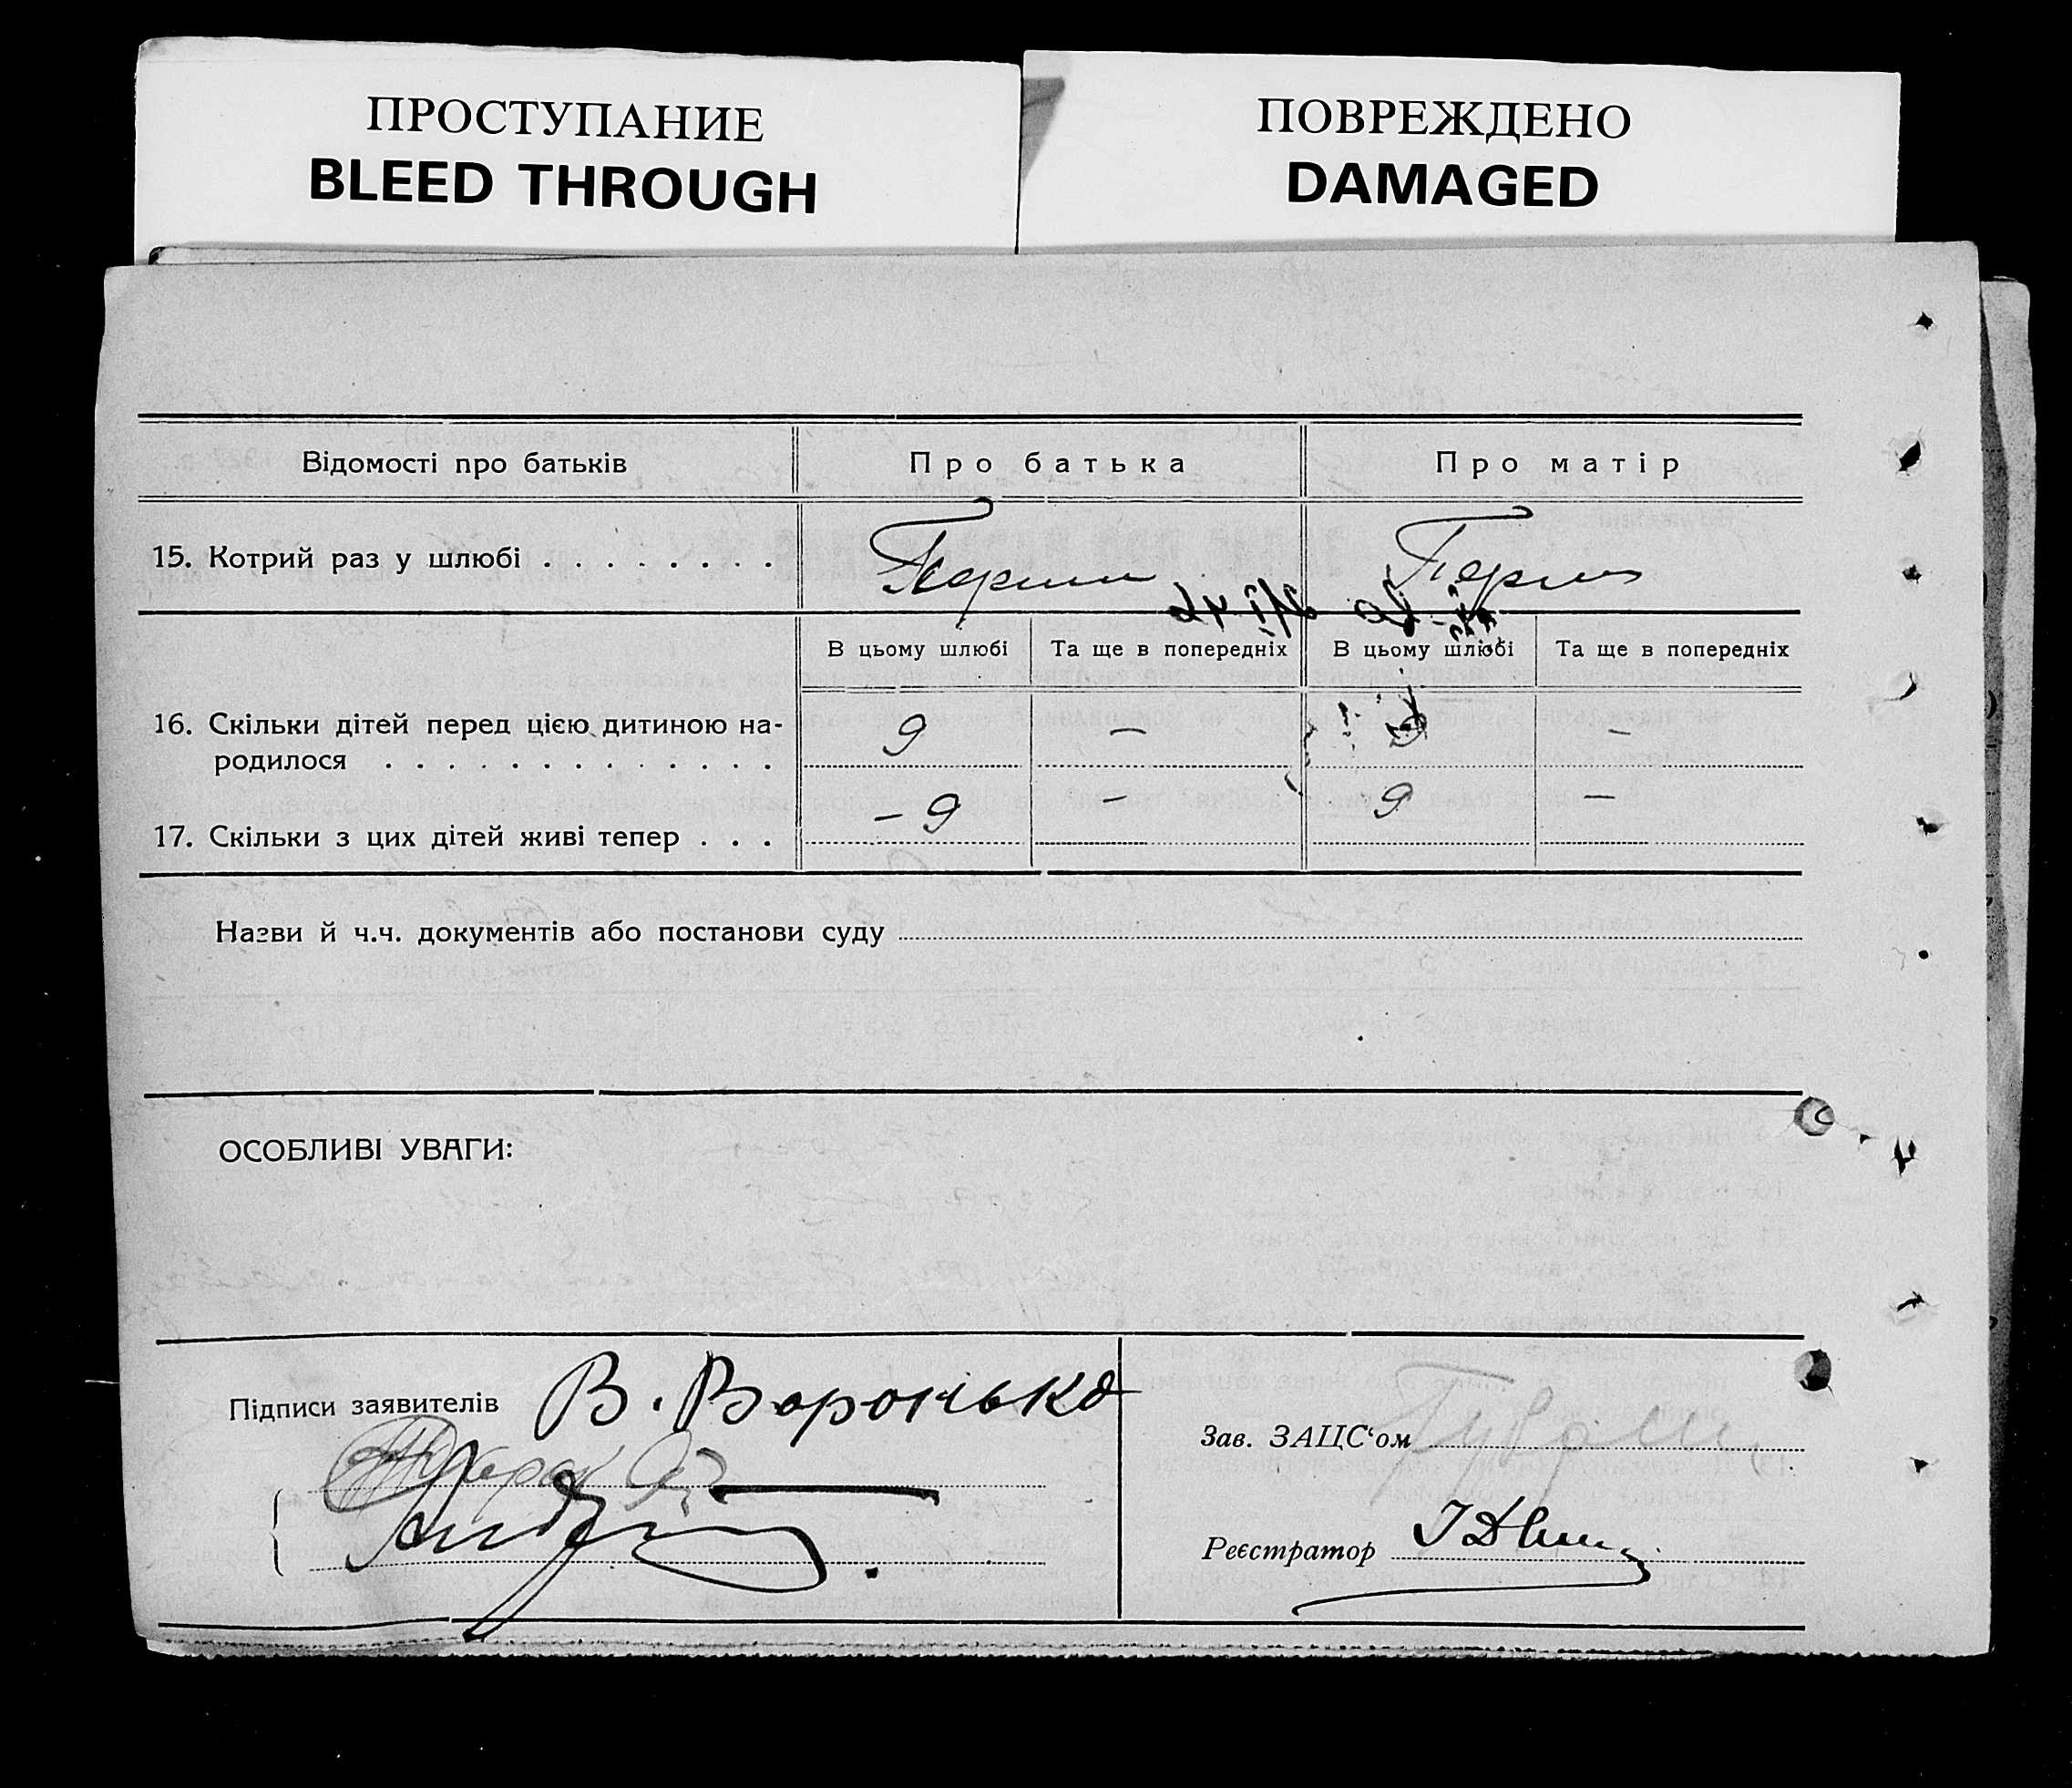 ПРОСТУПАНИЕ
BLEED THROUGH
ПОВРЕЖДЕНО
DAMAGED
Відомості про батьків
Про батька
Про матір
15. Котрий раз у шлюбі . . . . . . . .
В цьому шлюбі
Та ще в попередніх
В цьому шлюбі
Та ще в попередніх
16. Скільки дітей перед цією дитиною на-
родилося . . . . . . . . . . . . . .
9
—
9
—
17. Скільки з цих дітей живі тепер . . .
– 9
—
9
—
Назви й ч.ч. документів або постанови суду
ОСОБЛИВІ УВАГИ:
Підписи заявителів В. Воронько
Зав. ЗАЦС'ом
Реєстратор